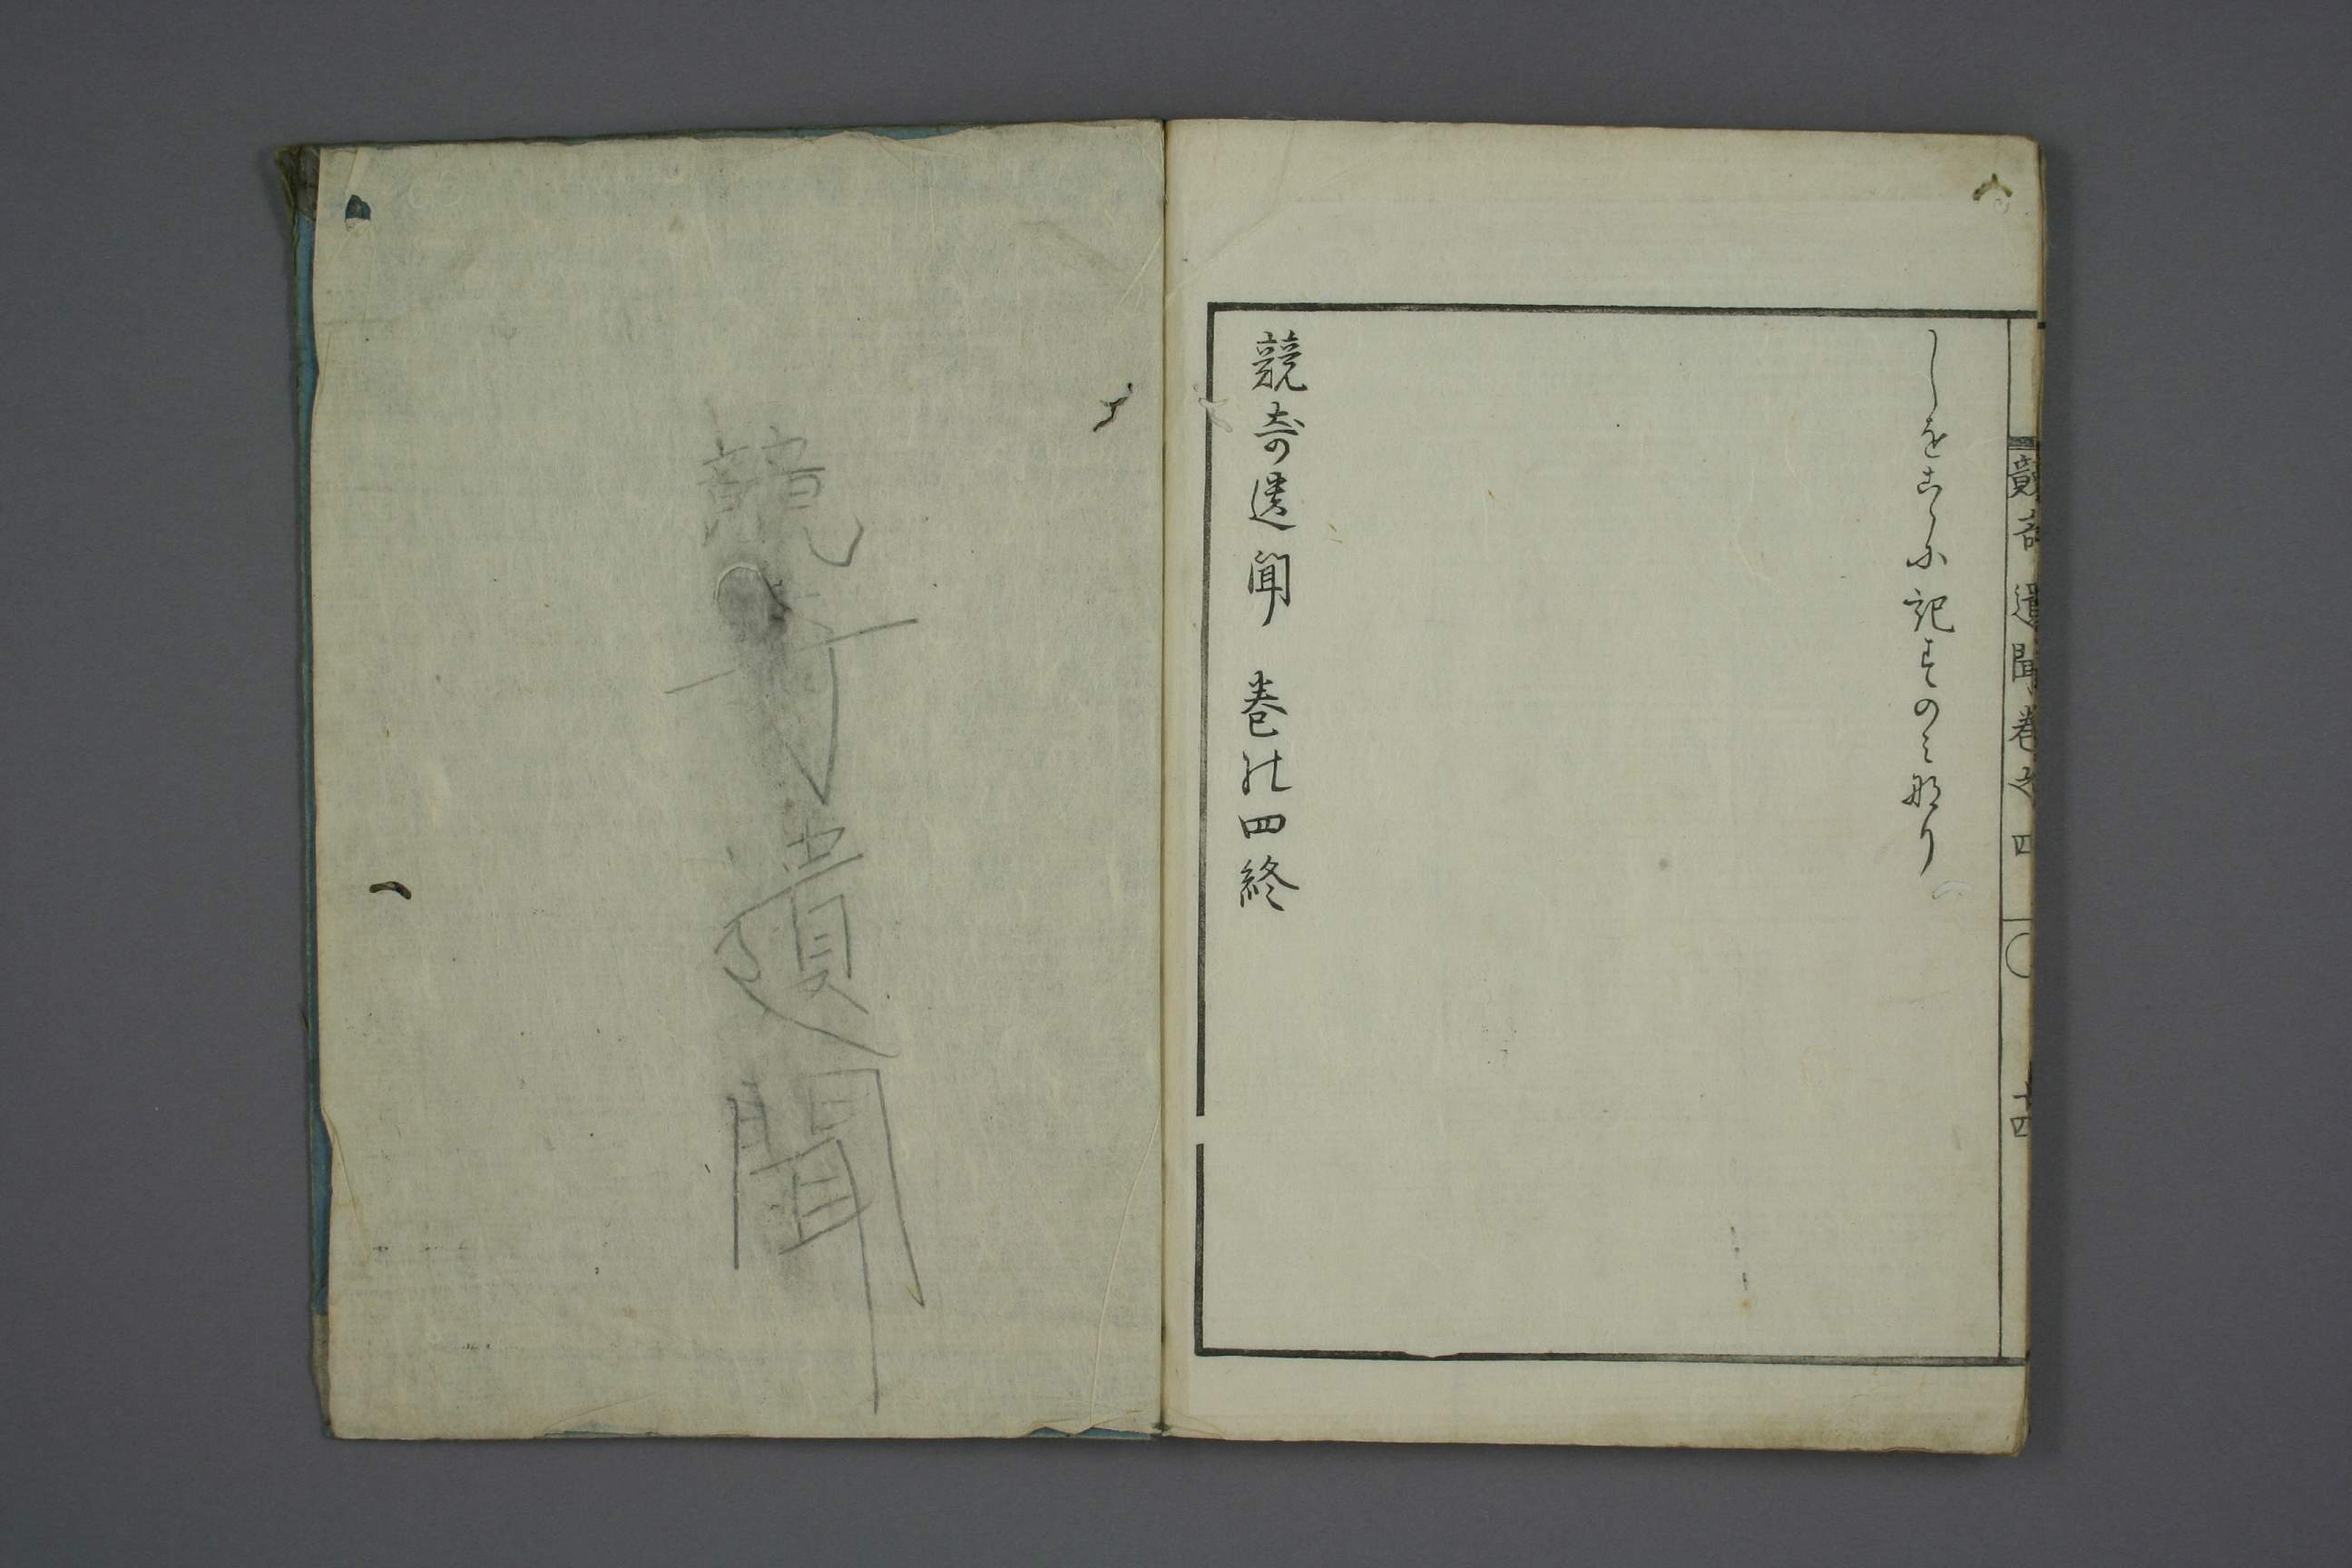 競奇遺聞巻之四 〇 十四
しをこゝに記すのみなり
競奇遺聞 巻之四終
競奇遺聞